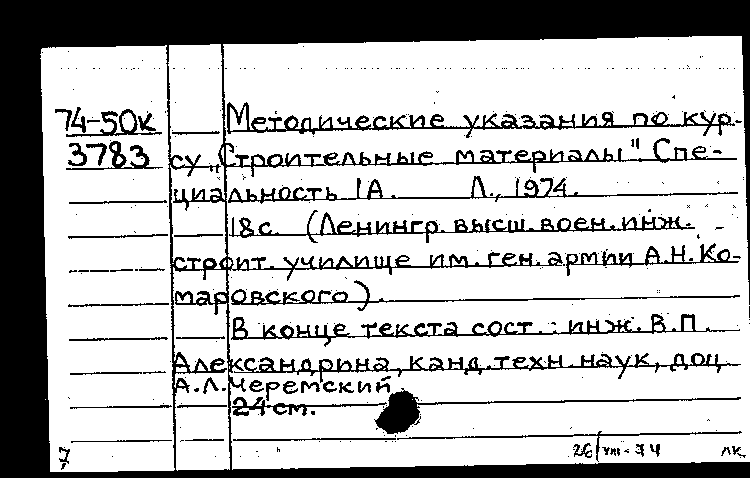 74-50к Методические указания по кур-
3783 су „Строительные материалы". Спе-
циальность 1А. Л., 1974.
18с. (Ленингр. высш. воен. инж.
строит. училище им. ген. армии А.Н. Ко-
маровского).
В конце текста сост.: инж. В.П.
Александрина, канд. техн. наук, доц.
А.Л. Черемский
24 см.
7 26/VIII-74 лк